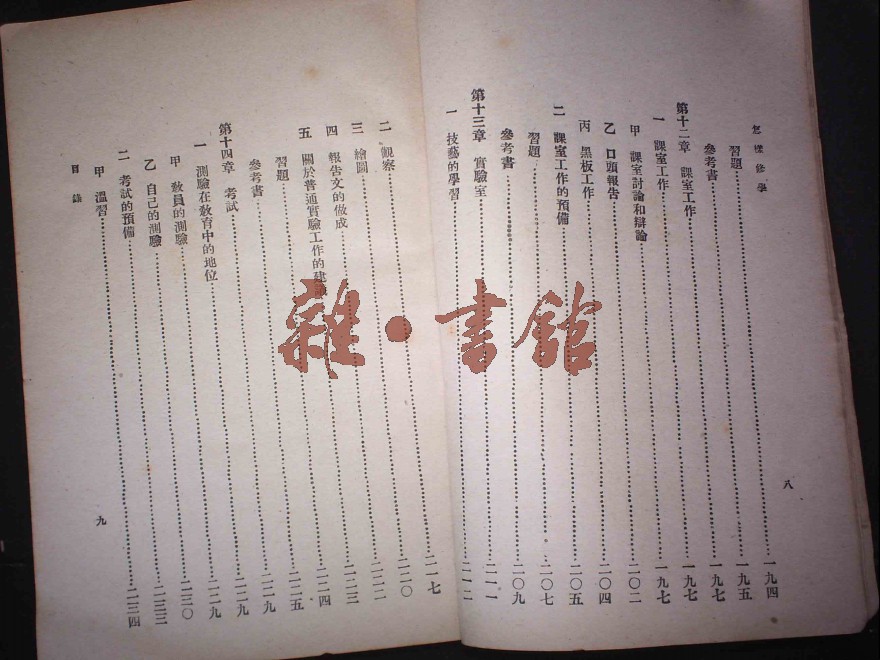 怎樣修學
八
習題……一九四
參考書……一九五
第十二章 課室工作……一九七
一 課室工作……一九七
甲 課室討論和辯論……一九七
乙 口頭報告……二〇二
丙 黑板工作……二〇四
二 課室工作的預備……二〇五
習題……二〇七
參考書……二〇九
第十三章 實驗室……二一一
一 技藝的學習……二一二
二 觀察……二一七
三 繪圖……二二〇
四 報告文的做成……二二二
五 關於普通實驗工作的建議……二二三
習題……二二四
參考書……二二五
第十四章 考試……二二九
一 測驗在教育中的地位……二二九
甲 教員的測驗……二二九
乙 自己的測驗……二三〇
二 考試的預備……二三三
甲 溫習……二三四
目錄
九
雜·書館